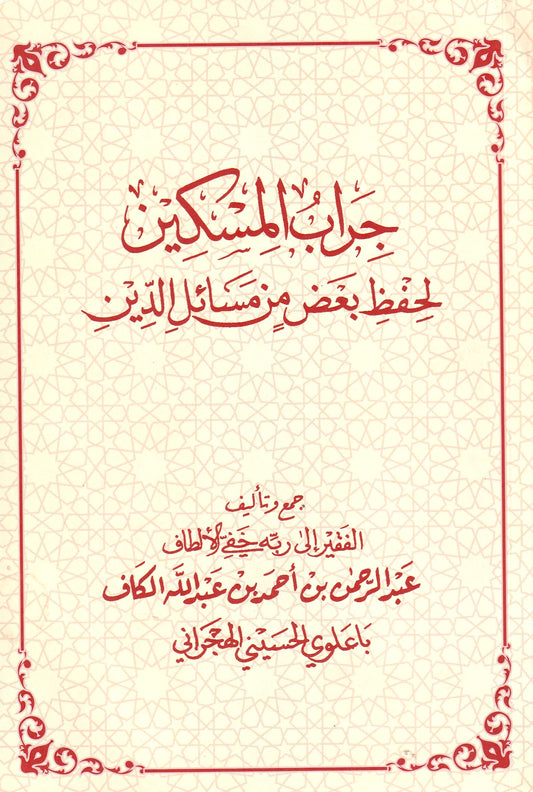 جِرَابُ المِسْكِين
لِحِفْظِ بَعْضٍ مِنْ مَسَائِلِ الدِّينِ
جمع وتأليف
الفَقِيْر إلى رَبِّه خَفِيّ الألطاف
عَبْدِ الرَّحمٰن بن أَحْمَد بن عَبْدِ اللَّه الكَاف
بَاعَلوي الحسَيْني الهَجَراني